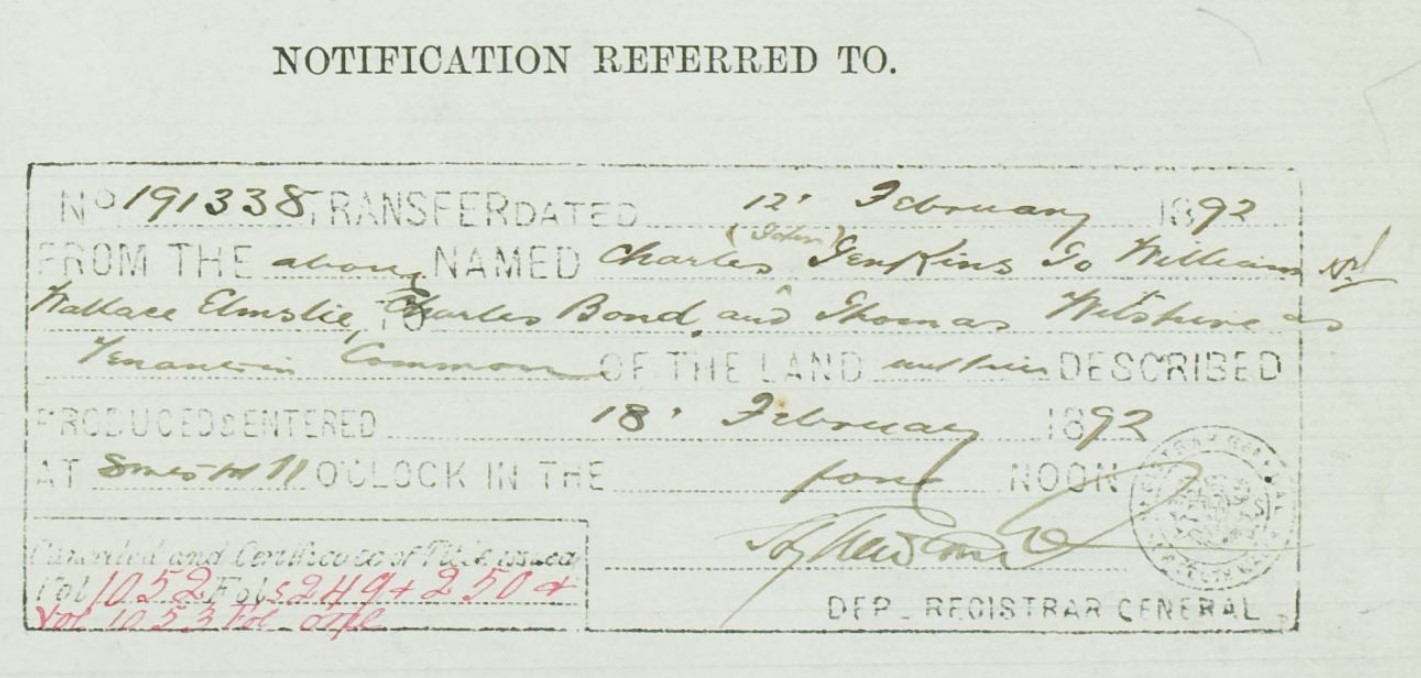 NOTIFICATION REFERRED TO.
No 191338 TRANSFER DATED 12' February 1892
FROM THE above NAMED Charles (John) Jenkins To William
Wallace Elmslie, Charles Bond, and Thomas Wiltshire as
Tenants in Common OF THE LAND within DESCRIBED
PRODUCED & ENTERED 18' February 1892
AT 8 mts to 11 O'CLOCK IN THE fore NOON
Cancelled and Certificates of Title issued
Vol 1052 Fols 249 + 250 &
Vol 1053 Fol one
DEP. REGISTRAR GENERAL